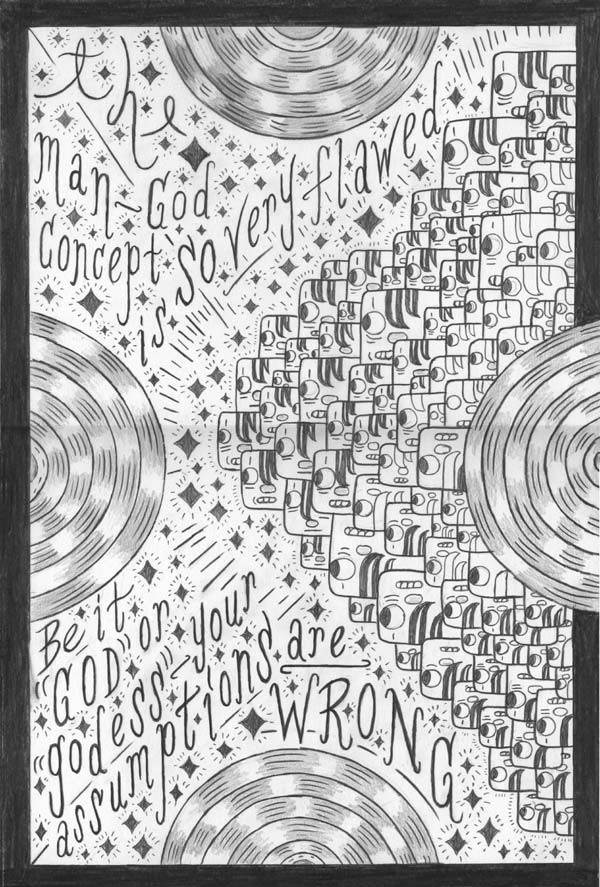 the
man-God
concept
is so very flawed
Be it
"GOD" or
"godess" - your
assumptions are
WRONG